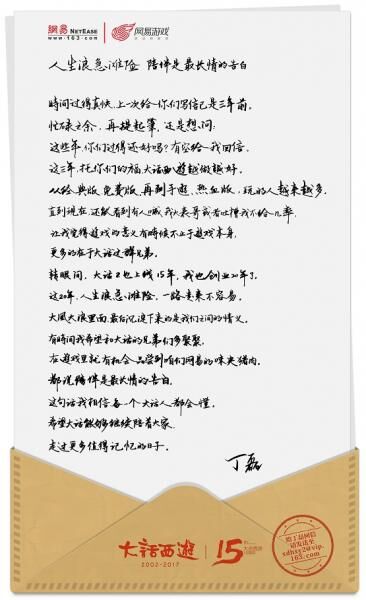 網易 NETEASE
www.163.com
网易游戏
人生浪急滩险 陪伴是最长情的告白
时间过得真快,上一次给你们写信已是三年前。
忙碌之余,再提起笔,还是想问:
这些年,你们过得还好吗?有空给我回信。
这三年,托你们的福,大话西游越做越好。
从经典版、免费版,再到手游、热血版,玩的人越来越多。
直到现在,还能看到有人喊我大表哥或者吐槽我不给几率,
让我觉得游戏的意义有时候不止于游戏本身,
更多的在于大话这群兄弟。
转眼间,大话2也上线15年,我也创业20年了。
这20年,人生浪急滩险,一路走来不容易。
大风大浪里面,最后沉淀下来的是我们之间的情义。
有时间我希望和大话的兄弟们多聚聚,
在游戏里就有机会品尝到咱们网易的味央猪肉。
都说陪伴是最长情的告白,
这句话我相信每一个大话人都会懂。
希望大话能够继续陪着大家,
走过更多值得记忆的日子。
丁磊
大话西游
2002-2017
15
给丁磊回信
请发送至
xdhxy2@vip.
163.com